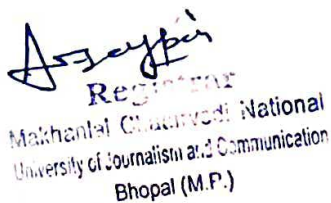 Registrar
Makhanlal Chaturvedi National
University of Journalism and Communication
Bhopal (M.P.)